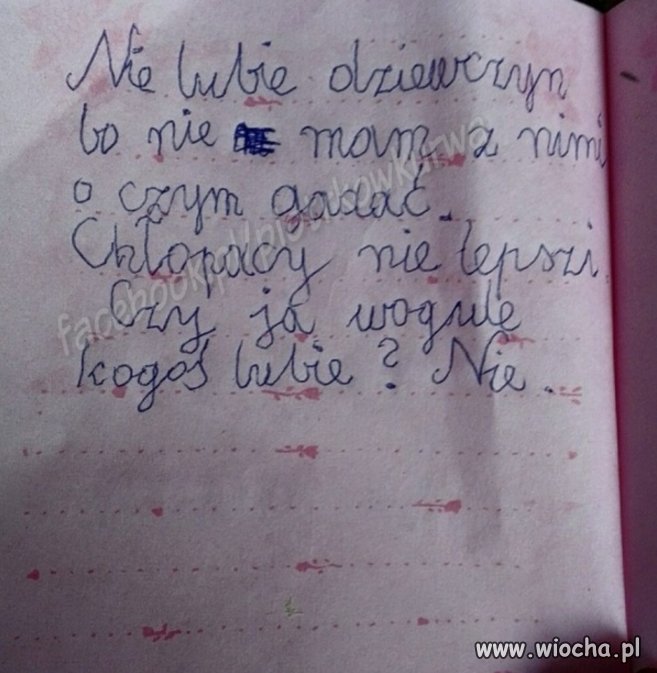 Nie lubie dziewczyn
bo nie mam z nimi
o czym gadać.
Chłopacy nie lepszi.
Czy ja wogule
kogoś lubie? Nie.
www.wiocha.pl